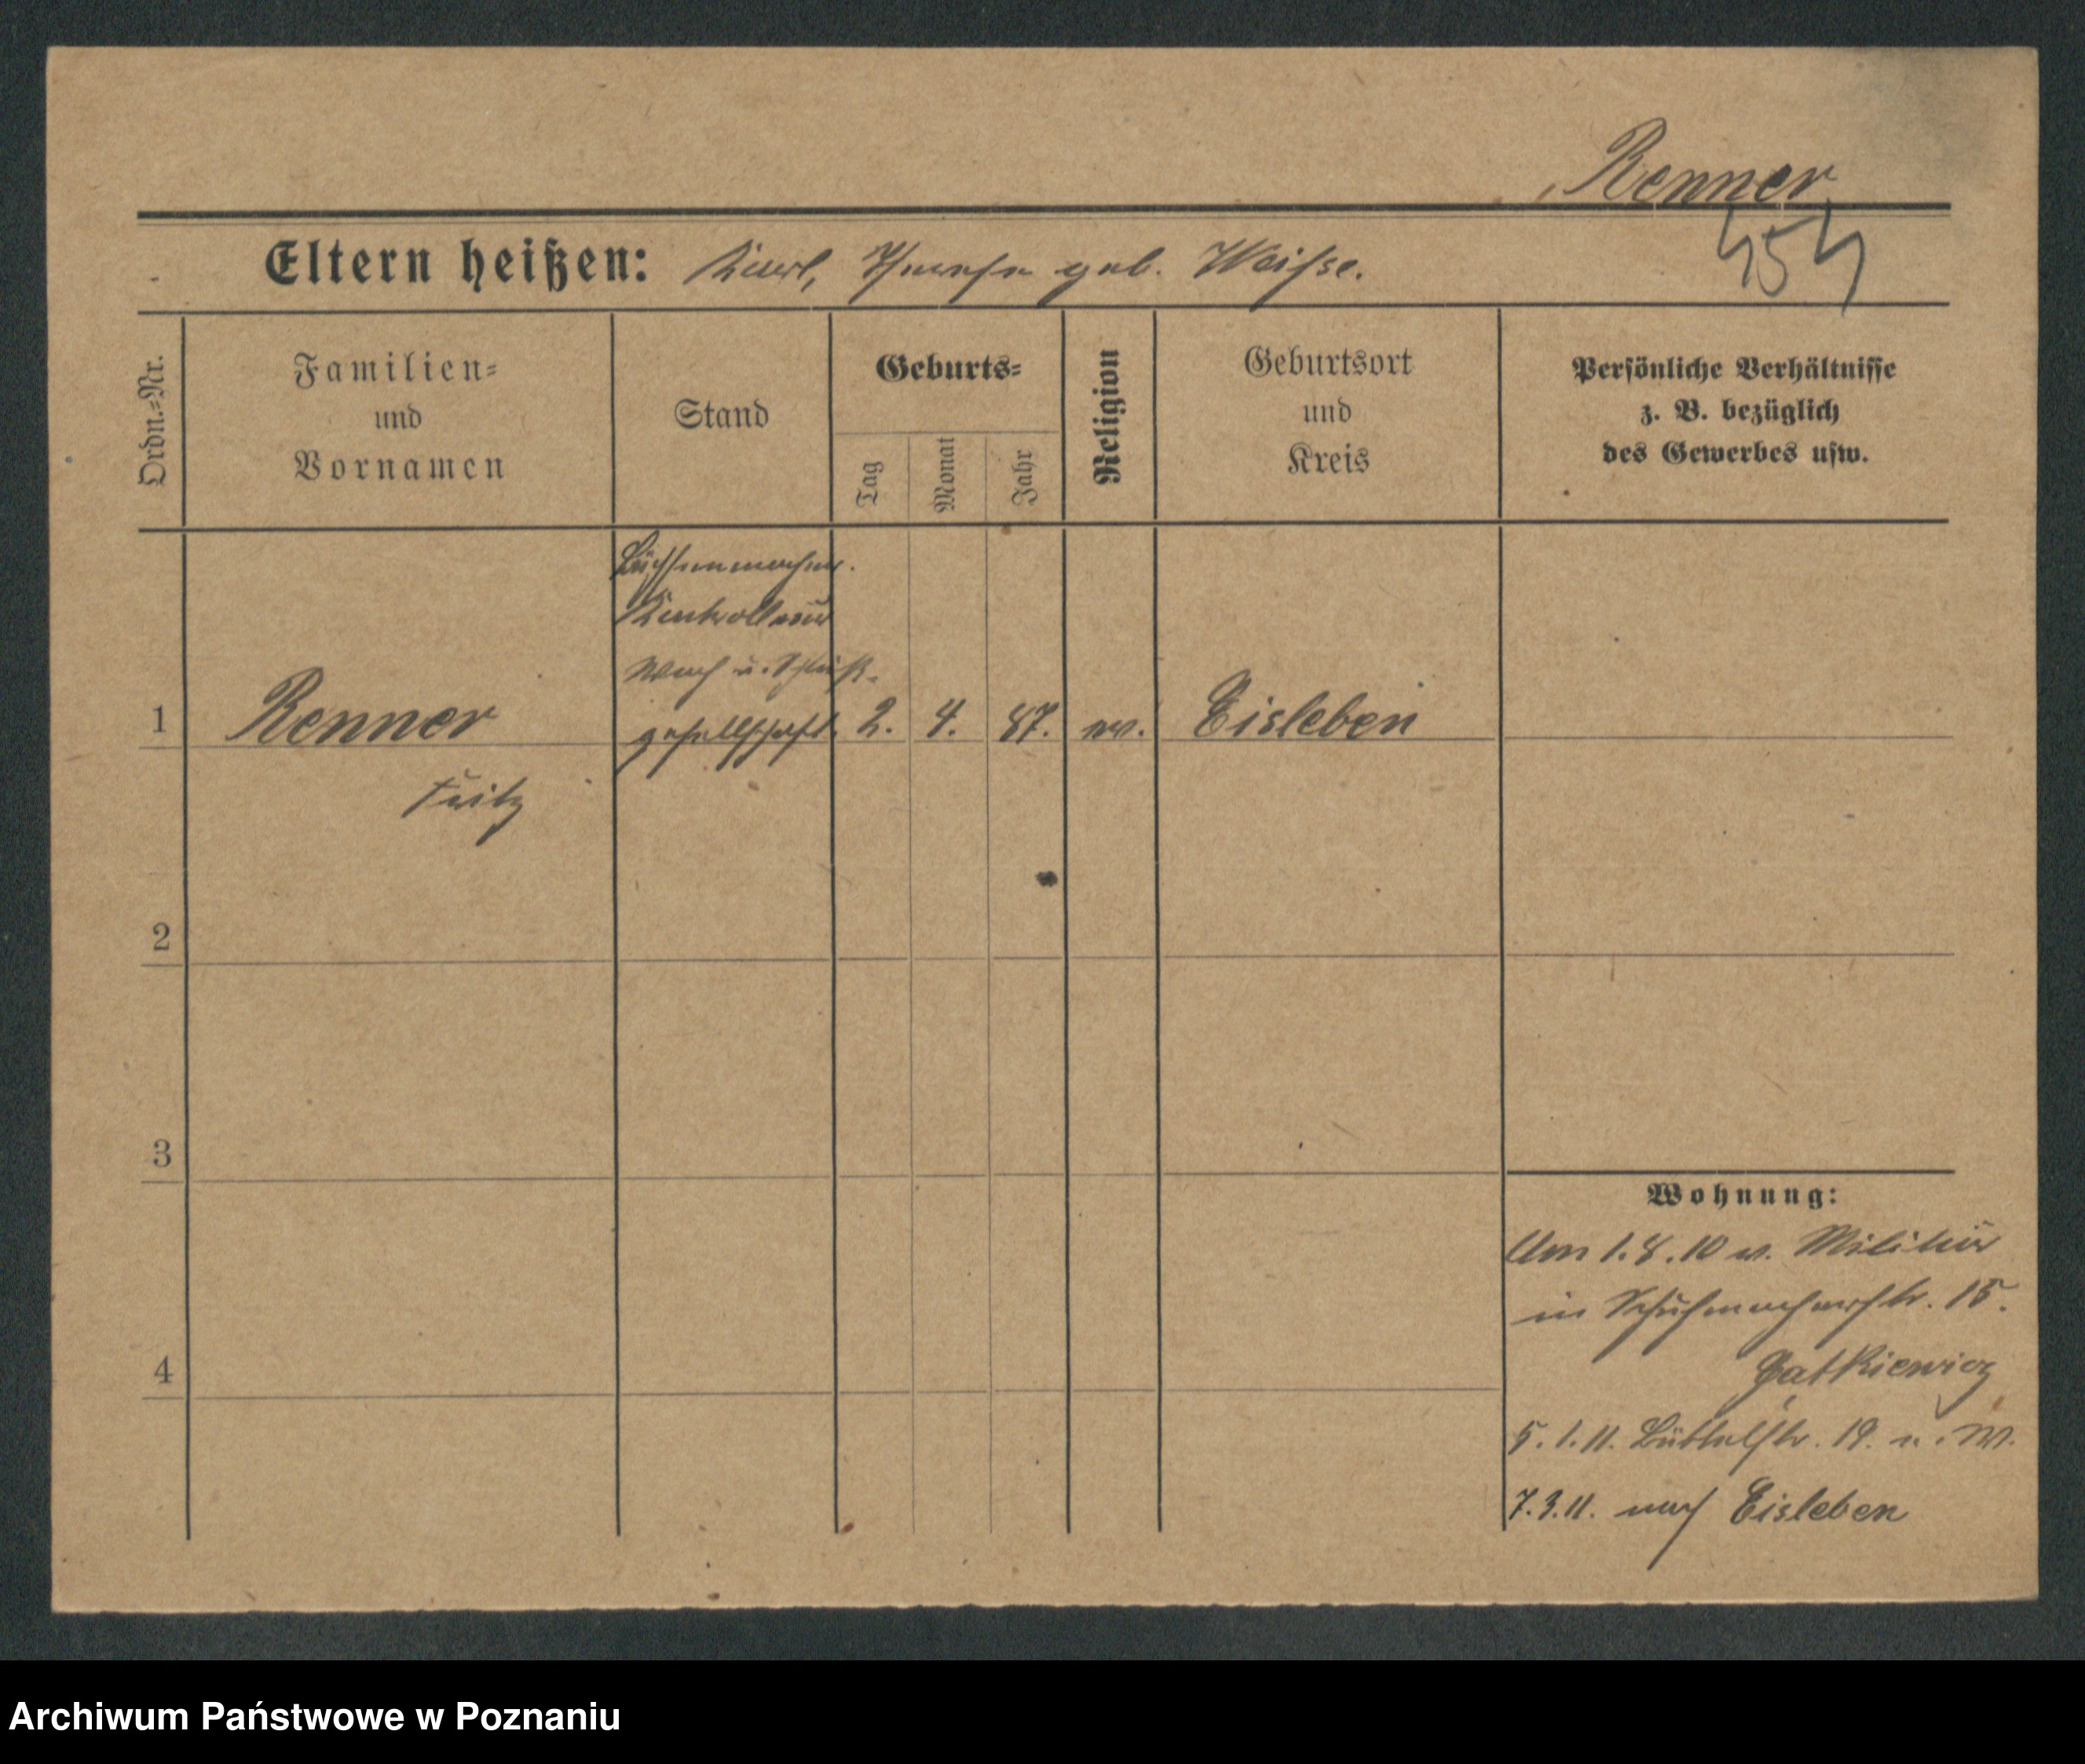 Renner
454
Eltern heißen: Karl, Therese geb. Weisse.
Ordn.=Nr.
Familien=
und
Vornamen
Stand
Geburts=
Tag
Monat
Jahr
Religion
Geburtsort
und
Kreis
Persönliche Verhältnisse
z. B. bezüglich
des Gewerbes usw.
Büchsenmacher.
Kontrolleur
Wach u. Schließ-
gesellschaft.
1 Renner 2. 4. 87. ev. Eisleben
Fritz
2
3
4
Wohnung:
Am 1.8.10 v. Militär
in Schuhmacherstr. 15.
5.1.11. Büttelstr. 19. b. W.
7.3.11. nach Eisleben
Archiwum Państwowe w Poznaniu